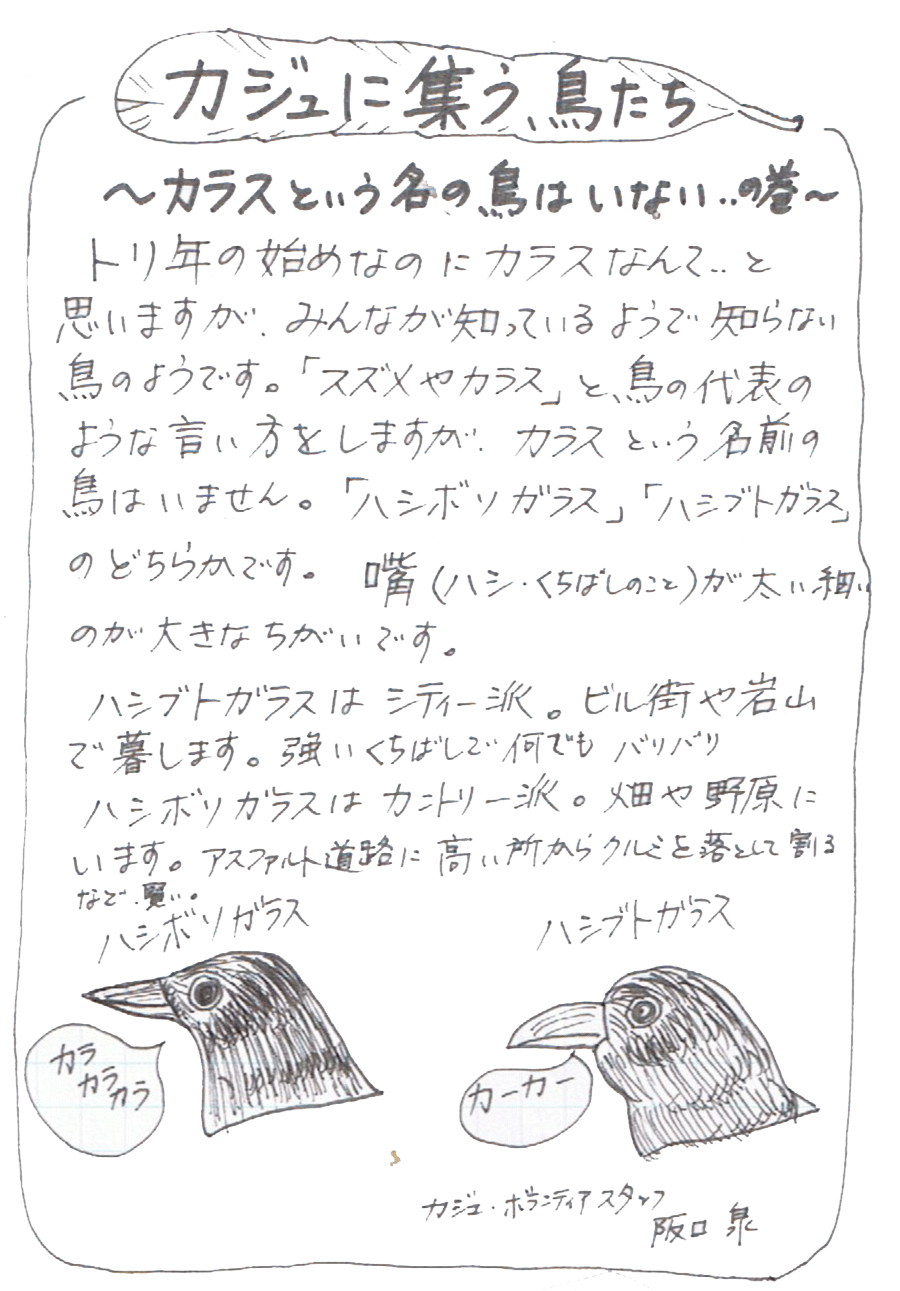 カジュに集う、鳥たち
～カラスという名の鳥はいない‥の巻～
トリ年の始めなのにカラスなんて‥と
思いますが、みんなが知っているようで知らない
鳥のようです。「スズメやカラス」と、鳥の代表の
ような言い方をしますが、カラスという名前の
鳥はいません。「ハシボソガラス」「ハシブトガラス」
のどちらかです。 嘴(ハシ・くちばしのこと)が太い細い
のが大きなちがいです。
ハシブトガラスはシティー派。ビル街や岩山
で暮します。強いくちばしで何でもバリバリ
ハシボソガラスはカントリー派。畑や野原に
います。アスファルト道路に高い所からクルミを落として割る
など、賢い。
ハシボソガラス
ハシブトガラス
カラ
カラ
カラ
カーカー
カジュ・ボランティアスタッフ
阪口 泉